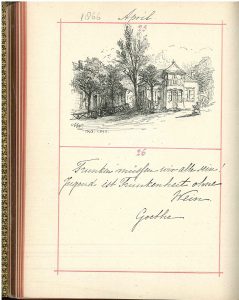 1866 April
25
26
Trunken müssen wir alle sein!
Jugend ist Trunkenheit ohne
Wein.
Goethe